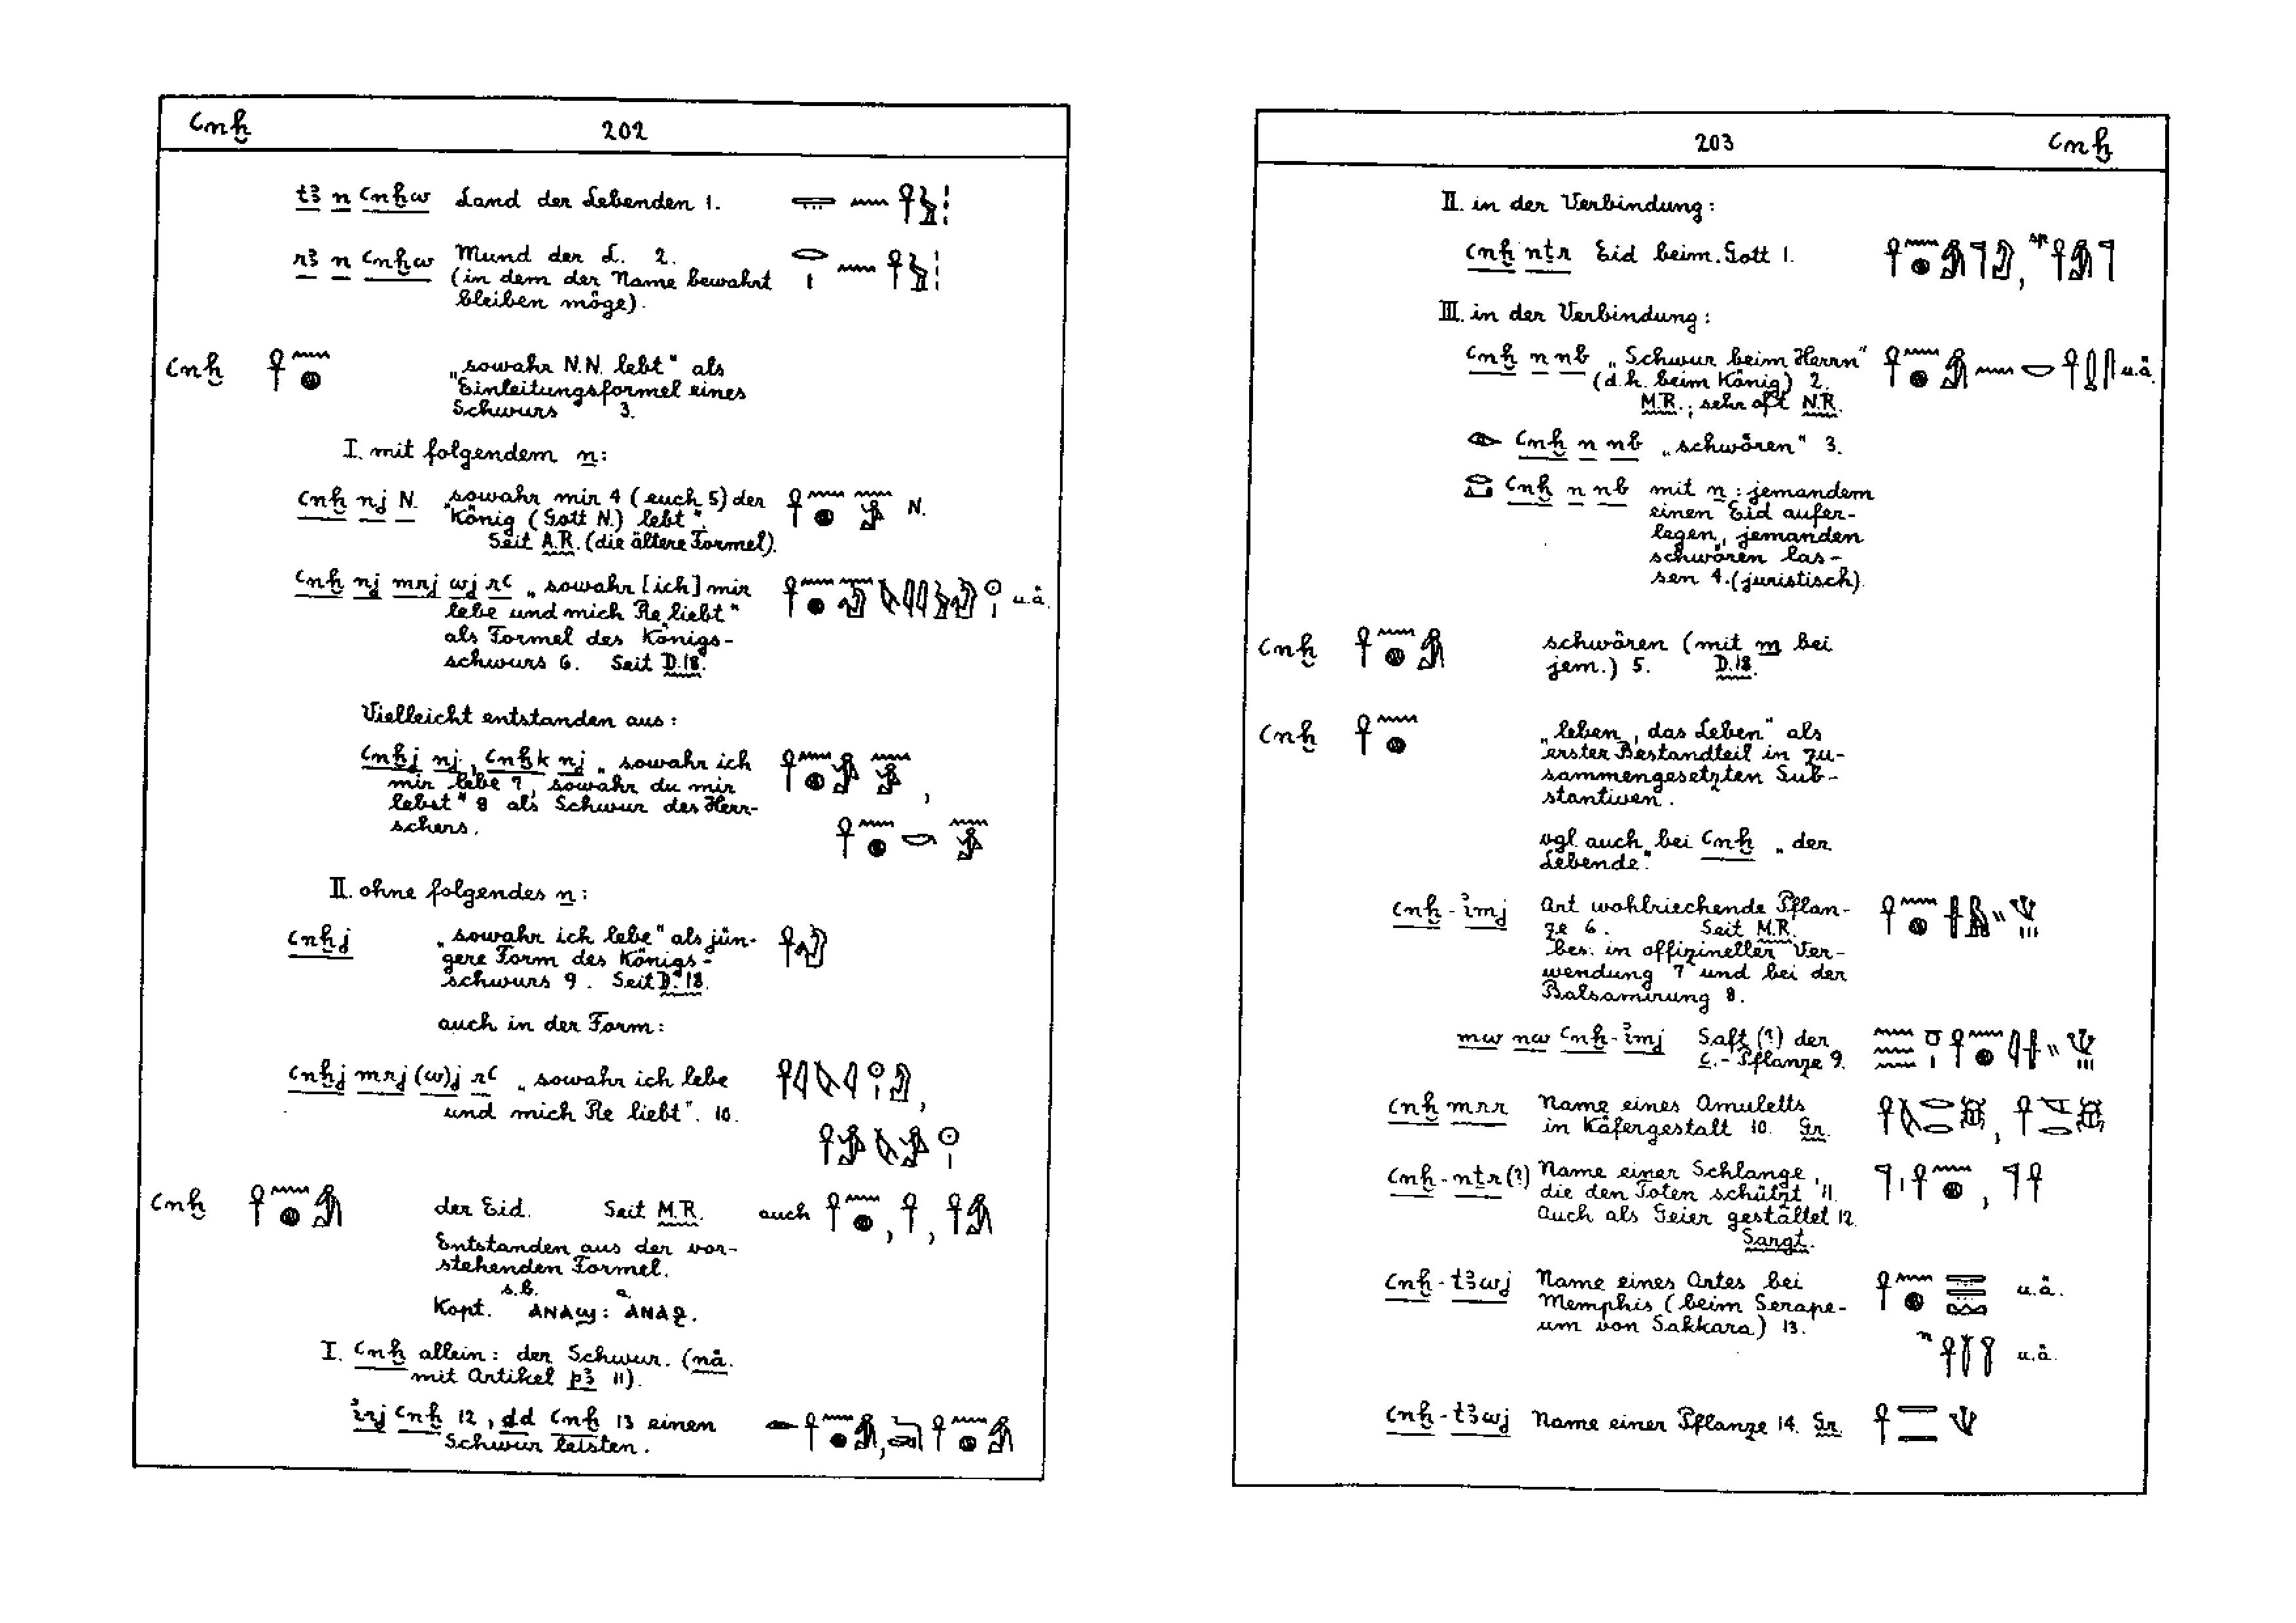 ꜥnḫ
202
tꜣ n ꜥnḫw Land der Lebenden 1. 𓇾 𓈖 𓋹
rꜣ n ꜥnḫw Mund der L. 2. 𓂋𓏤 𓈖 𓋹
(in dem der Name bewahrt
bleiben möge).
ꜥnḫ 𓋹𓈖𓐍 „sowahr N.N. lebt" als
Einleitungsformel eines
Schwurs 3.
I. mit folgendem n:
ꜥnḫ nj N. „sowahr mir 4 (euch 5) der 𓋹𓈖𓐍 𓈖𓀀 N.
König (Gott N.) lebt".
Seit A.R. (die ältere Formel).
ꜥnḫ nj mrj wj rꜥ „sowahr [ich] mir u.ä.
lebe und mich Re liebt"
als Formel des Königs-
schwurs 6. Seit D.18.
Vielleicht entstanden aus:
ꜥnḫj nj, ꜥnḫk nj „sowahr ich 𓋹𓈖𓐍𓀀 𓈖𓀀,
mir lebe 7, sowahr du mir
lebst" 8 als Schwur des Herr-
schers. 𓋹𓈖𓐍𓎡 𓈖𓀀
II. ohne folgendes n:
ꜥnḫj „sowahr ich lebe" als jün-
gere Form des Königs-
schwurs 9. Seit D.18.
auch in der Form:
ꜥnḫj mrj (w)j rꜥ „sowahr ich lebe
und mich Re liebt". 10.
ꜥnḫ 𓋹𓈖𓐍𓀁 der Eid. Seit M.R. auch 𓋹𓈖𓐍, 𓋹, 𓋹𓀁
Entstanden aus der vor-
stehenden Formel.
Kopt. s.b. ⲁⲛⲁϣ: a. ⲁⲛⲁϩ.
I. ꜥnḫ allein: der Schwur. (nä.
mit Artikel pꜣ 11).
ı͗rj ꜥnḫ 12, dd ꜥnḫ 13 einen 𓁹𓋹𓈖𓐍𓀁, 𓆓𓂧𓋹𓈖𓐍𓀁
Schwur leisten.
203
ꜥnḫ
II. in der Verbindung:
ꜥnḫ nṯr Eid beim Gott 1. 𓋹𓈖𓐍𓀁𓊹, sp 𓋹𓀁𓊹
III. in der Verbindung:
ꜥnḫ n nb „Schwur beim Herrn" 𓋹𓈖𓐍𓀁𓈖𓎟𓋹𓍑𓋴 u.ä.
(d.h. beim König) 2.
M.R.; sehr oft N.R.
𓁹 ꜥnḫ n nb „schwören" 3.
ꜥnḫ n nb mit n: jemandem
einen Eid aufer-
legen, jemanden
schwören las-
sen 4. (juristisch).
ꜥnḫ 𓋹𓈖𓐍𓀁 schwören (mit m bei
jem.) 5. D.18.
ꜥnḫ 𓋹𓈖𓐍 „leben, das Leben" als
erster Bestandteil in zu-
sammengesetzten Sub-
stantiven.
vgl. auch bei ꜥnḫ „der
Lebende".
ꜥnḫ-ı͗mj Art wohlriechende Pflan-
ze 6. Seit M.R.
bes. in offizineller Ver-
wendung 7 und bei der
Balsamirung 8.
mw nw ꜥnḫ-ı͗mj Saft (?) der
ꜥ.-Pflanze 9.
ꜥnḫ mrr Name eines Amuletts
in Käfergestalt 10. Gr.
ꜥnḫ-nṯr (?) Name einer Schlange, 𓊹𓏤𓋹𓈖𓐍, 𓊹𓋹
die den Toten schützt 11.
Auch als Geier gestaltet 12.
Sargt.
ꜥnḫ-tꜣwj Name eines Ortes bei 𓋹𓈖𓐍𓇾𓇾𓈊 u.ä.
Memphis (beim Serape-
um von Sakkara) 13.
n u.ä.
ꜥnḫ-tꜣwj Name einer Pflanze 14. Gr. 𓋹𓇿𓇿𓆰